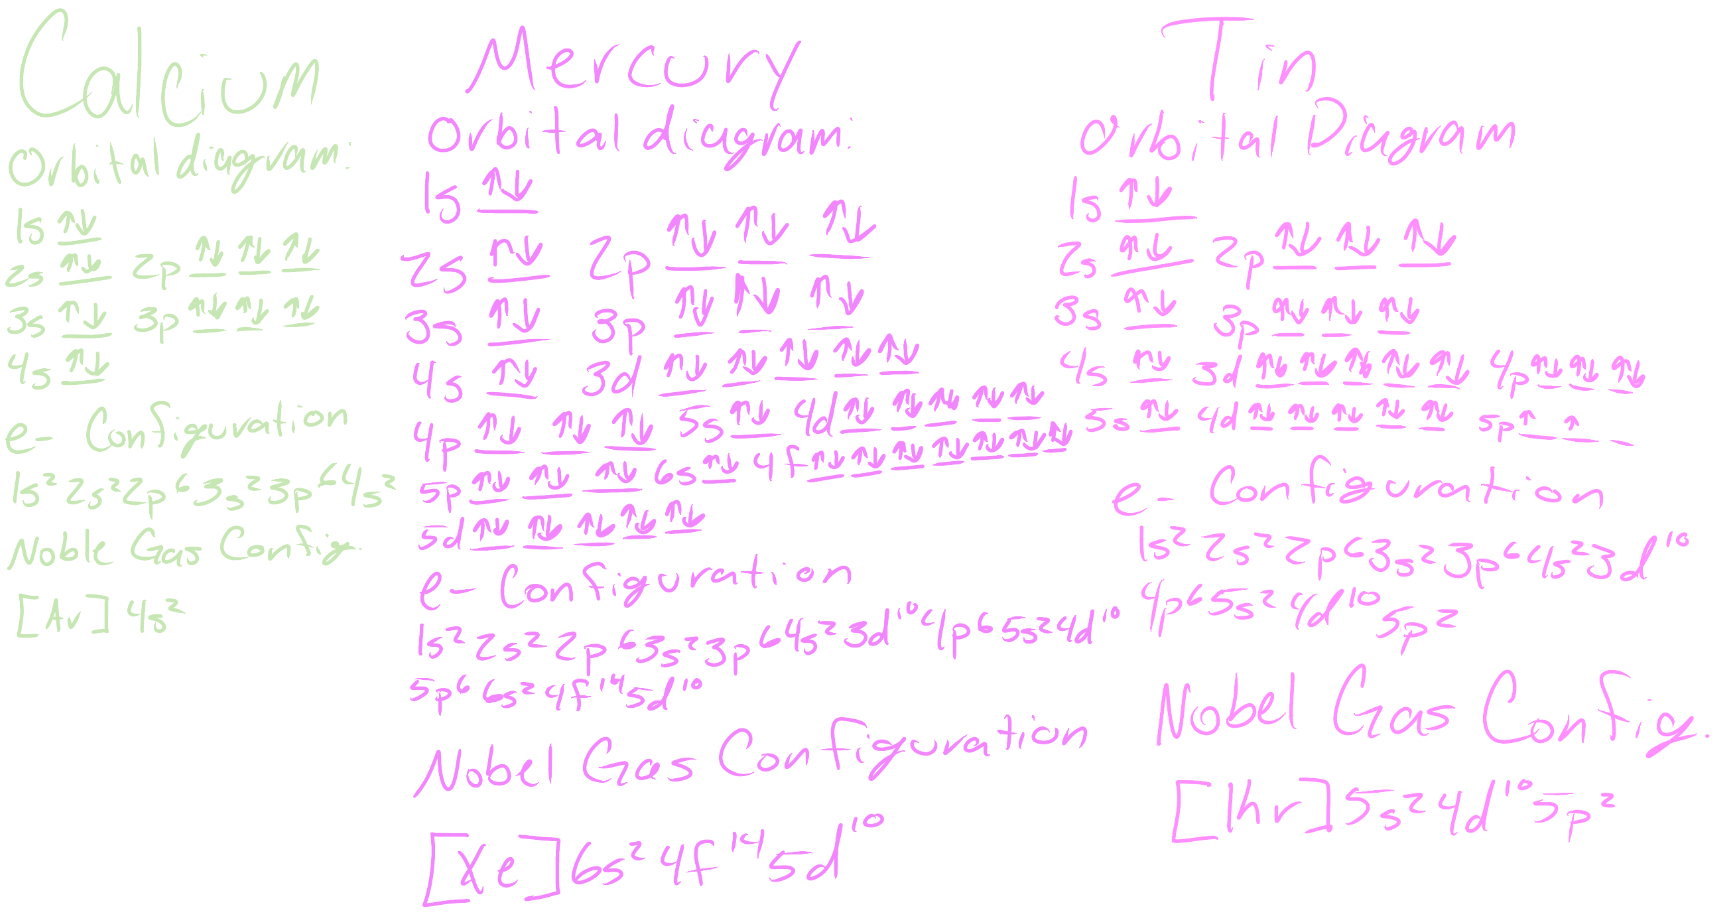 Calcium
Orbital diagram:
1s ↑↓
2s ↑↓ 2p ↑↓ ↑↓ ↑↓
3s ↑↓ 3p ↑↓ ↑↓ ↑↓
4s ↑↓
e- Configuration
1s² 2s² 2p⁶ 3s² 3p⁶ 4s²
Noble Gas Config.
[Ar] 4s²
Mercury
Orbital diagram:
1s ↑↓
2s ↑↓ 2p ↑↓ ↑↓ ↑↓
3s ↑↓ 3p ↑↓ ↑↓ ↑↓
4s ↑↓ 3d ↑↓ ↑↓ ↑↓ ↑↓ ↑↓
4p ↑↓ ↑↓ ↑↓ 5s ↑↓ 4d ↑↓ ↑↓ ↑↓ ↑↓ ↑↓
5p ↑↓ ↑↓ ↑↓ 6s ↑↓ 4f ↑↓ ↑↓ ↑↓ ↑↓ ↑↓ ↑↓ ↑↓
5d ↑↓ ↑↓ ↑↓ ↑↓ ↑↓
e- Configuration
1s² 2s² 2p⁶ 3s² 3p⁶ 4s² 3d¹⁰ 4p⁶ 5s² 4d¹⁰
5p⁶ 6s² 4f¹⁴ 5d¹⁰
Nobel Gas Configuration
[Xe] 6s² 4f¹⁴ 5d¹⁰
Tin
Orbital Diagram
1s ↑↓
2s ↑↓ 2p ↑↓ ↑↓ ↑↓
3s ↑↓ 3p ↑↓ ↑↓ ↑↓
4s ↑↓ 3d ↑↓ ↑↓ ↑↓ ↑↓ ↑↓ 4p ↑↓ ↑↓ ↑↓
5s ↑↓ 4d ↑↓ ↑↓ ↑↓ ↑↓ ↑↓ 5p ↑ ↑ _
e- Configuration
1s² 2s² 2p⁶ 3s² 3p⁶ 4s² 3d¹⁰
4p⁶ 5s² 4d¹⁰ 5p²
Nobel Gas Config.
[Ihr] 5s² 4d¹⁰ 5p²